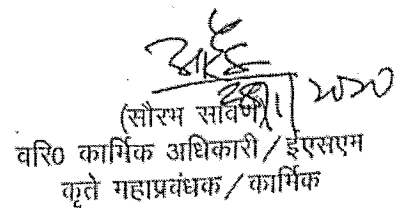 2020
(सौरभ सावर्ण)
वरि0 कार्मिक अधिकारी / ईएसएम
कृते गहाप्रबंधक / कार्मिक